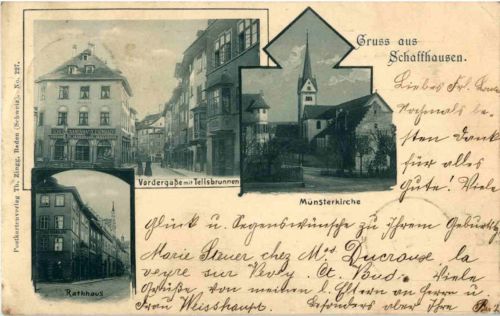 Gruss aus
Schaffhausen.
Postkartenverlag Th. Zingg, Baden (Schweiz), No. 297.
Vordergaße mit Tellsbrunnen
Münsterkirche
Rathhaus
Liebes Frl.
Nochmals be-
sten Dank
für alles
Gute! Viele
Glück u. Segenswünsche zu Ihrem Geburtst
Marie Steuer chez Md. Ducraue la
veyre sur Vevey. Ct. Vud. Viele
Grüße von meinen l. Eltern an Herrn u.
Frau Weisshaupt. besonders aber Ihre